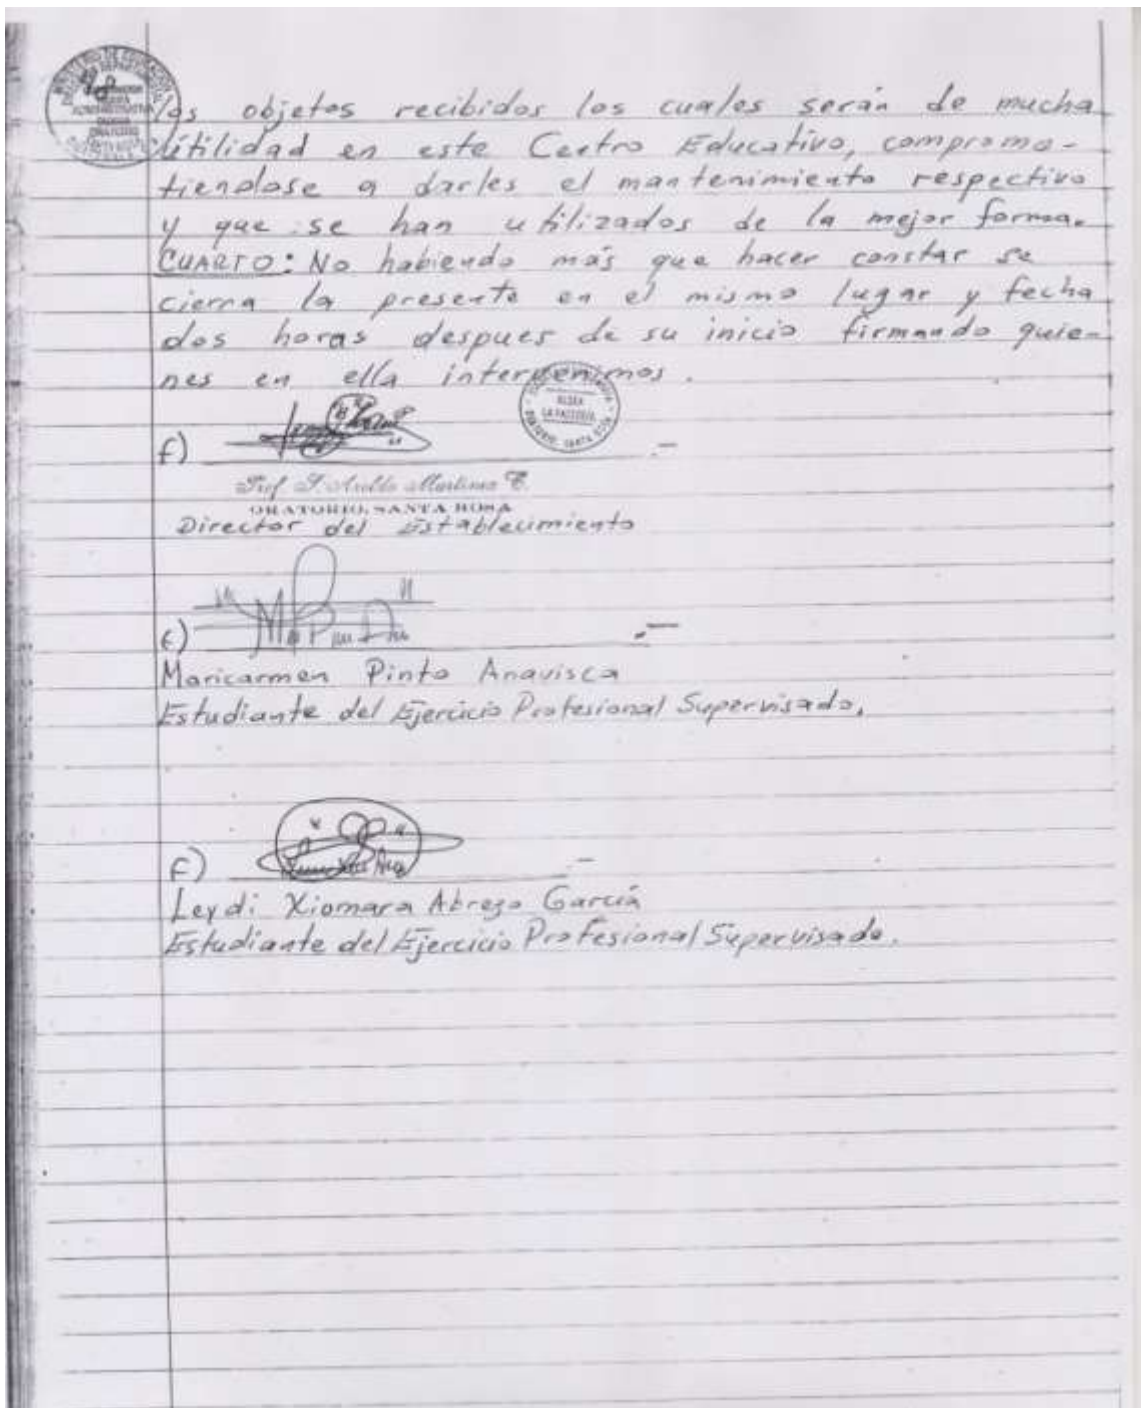 MINISTERIO DE EDUCACION
ADMINISTRATIVA
ORATORIO
los objetos recibidos los cuales serán de mucha
útilidad en este Centro Educativo, comprome-
tiendose a darles el mantenimiento respectivo
y que se han utilizados de la mejor forma.
CUARTO: No habiendo más que hacer constar se
cierra la presente en el mismo lugar y fecha
dos horas despues de su inicio firmando quie-
nes en ella intervenimos.
ALDEA
ORATORIO, SANTA ROSA
f)
.-
Prof. Martinez
ORATORIO, SANTA ROSA
Director del Establecimiento
f)
.-
Maricarmen Pinto Anavisca
Estudiante del Ejercicio Profesional Supervisado.
f)
.-
Leydi Xiomara Abrego García
Estudiante del Ejercicio Profesional Supervisado.